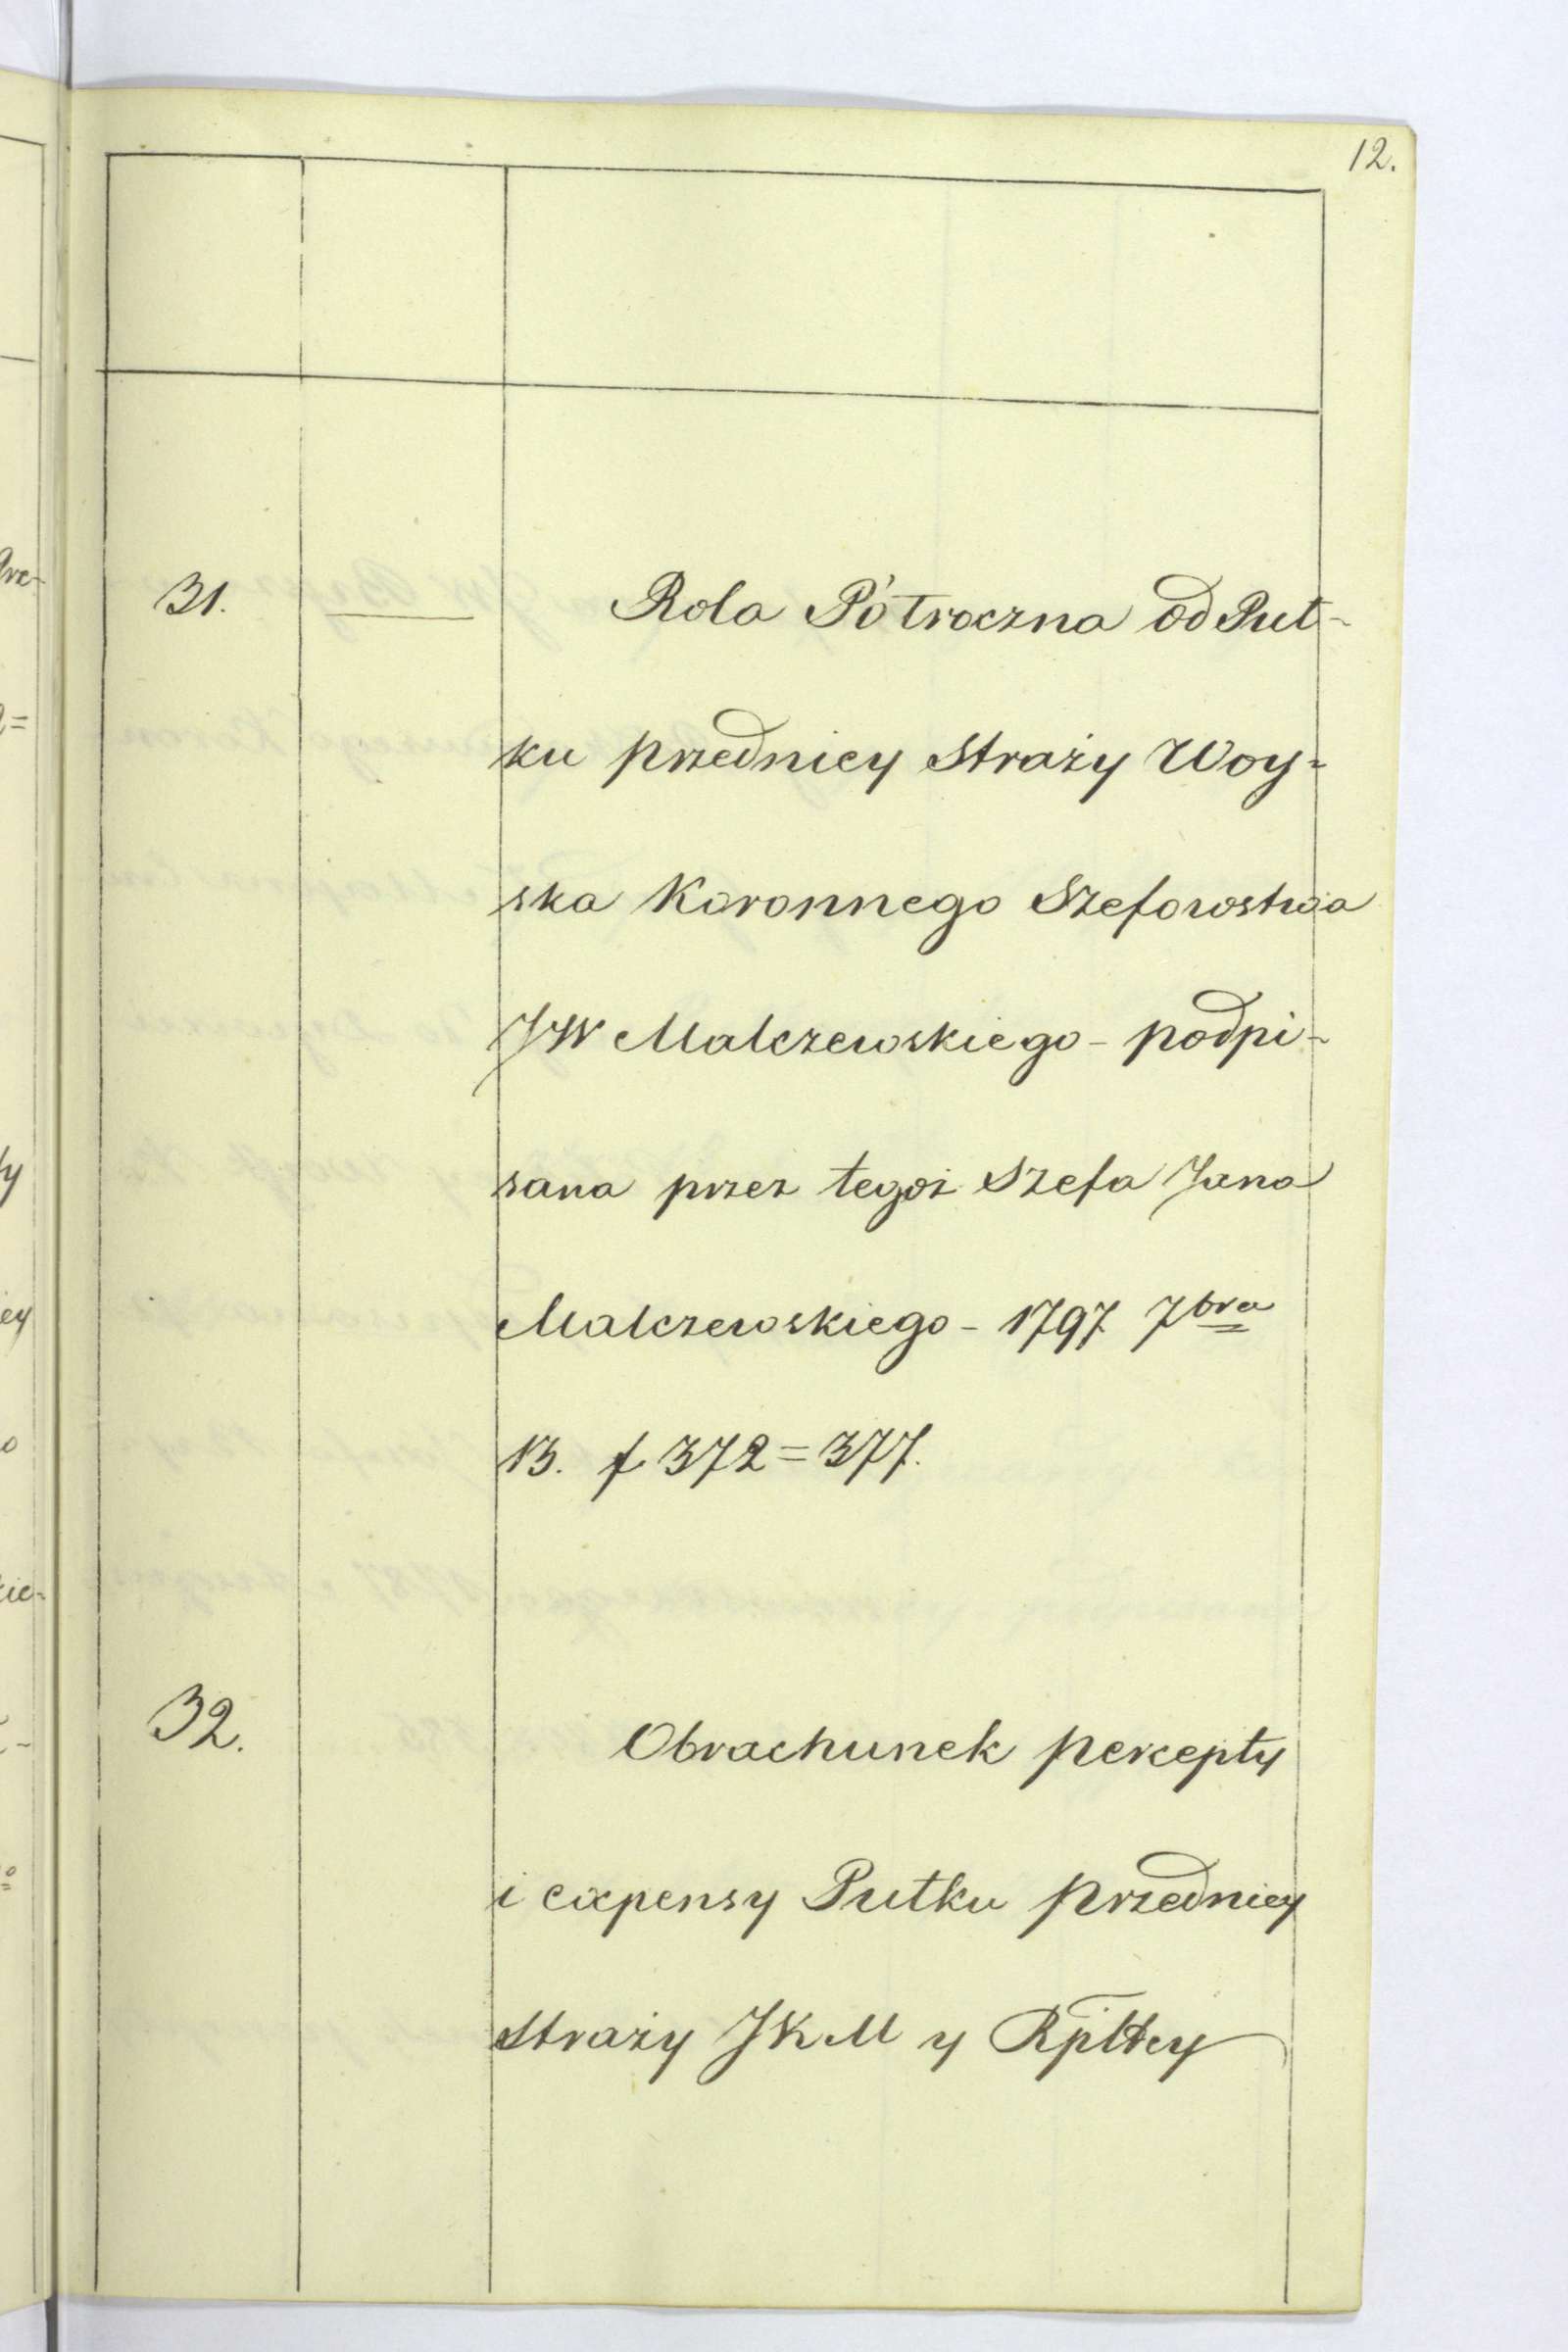 12.
31. — Rola Półroczna od Puł-
ku przedniey Straży Woy=
ska Koronnego Szefowstwa
JW Malczewskiego - podpi-
sana przez tegoż Szefa Jana
Malczewskiego - 1797 7bra
13. f 372=377.
32. Obrachunek percepty
i expensy Pułku przedniey
Straży JKM y Rpltey